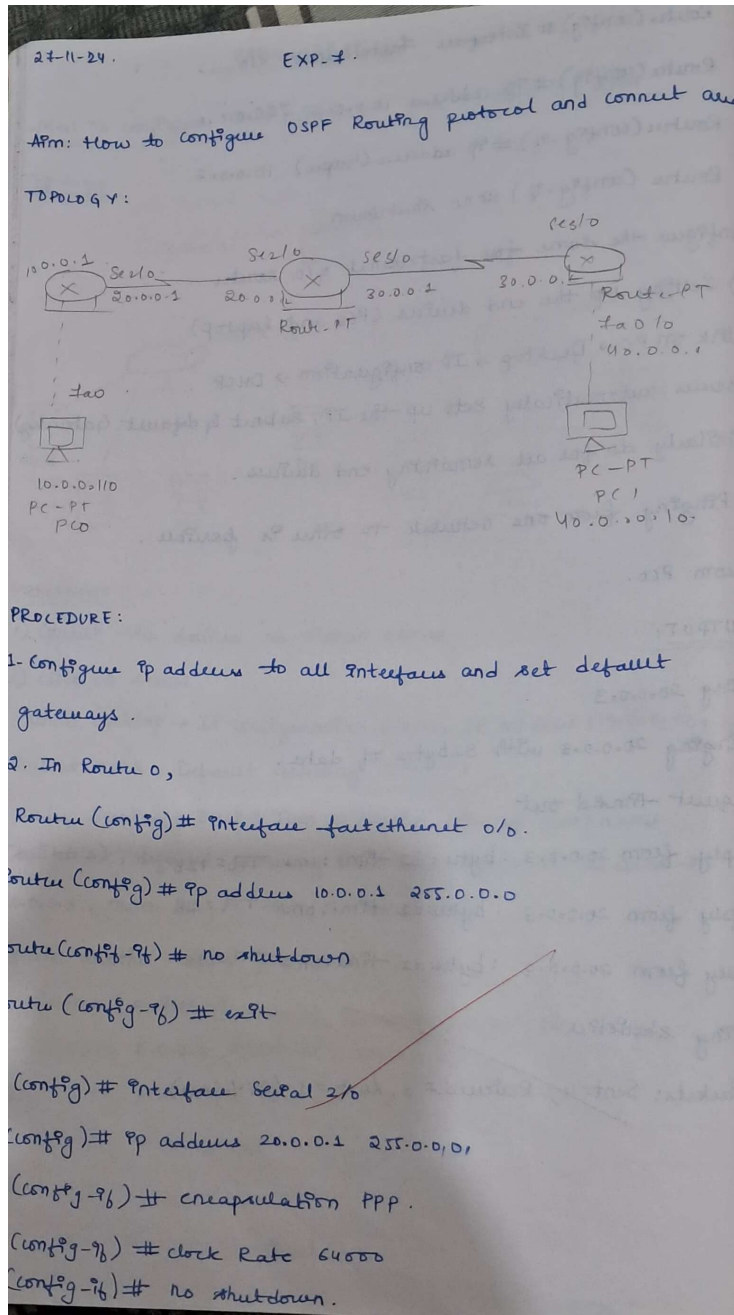 27-11-24.
EXP-7.
Aim: How to configure OSPF Routing protocol and connect
TOPOLOGY:
10.0.0.1
Se2/0
20.0.0.1
Se2/0
20.0.0.2
Router-PT
Se3/0
30.0.0.1
Se3/0
30.0.0.2
Router-PT
fa0/0
40.0.0.1
fa0
10.0.0.110
PC-PT
PC0
PC-PT
PC1
40.0.0.0.10.
PROCEDURE:
1- Configure ip address to all interfaces and set default
gateways.
2. In Router 0,
Router (config)# interface fastethernet 0/0.
outer (config)# ip address 10.0.0.1 255.0.0.0
outer (config-if)# no shutdown
outer (config-if)# exit
(config)# interface Serial 2/0
(config)# ip address 20.0.0.1 255.0.0,0,
(config-if)# encapsulation PPP.
(config-if)# clock Rate 64000
(config-if)# no shutdown.